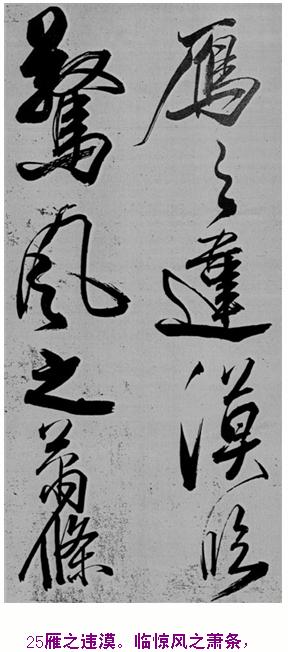 雁之違漠臨
驚風之蕭條
25雁之违漠。临惊风之萧条，